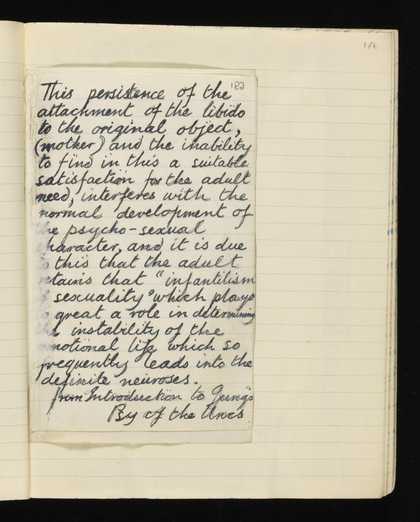 182
This persistence of the
attachment of the libido
to the original object,
(mother) and the inability
to find in this a suitable
satisfaction for the adult
need, interferes with the
normal development of
the psycho-sexual
character, and it is due
to this that the adult
retains that "infantilism
of sexuality" which plays
so great a role in determining
the instability of the
emotional life which so
frequently leads into the
definite neuroses.
from Introduction to Jung's
Psy of the Uncs